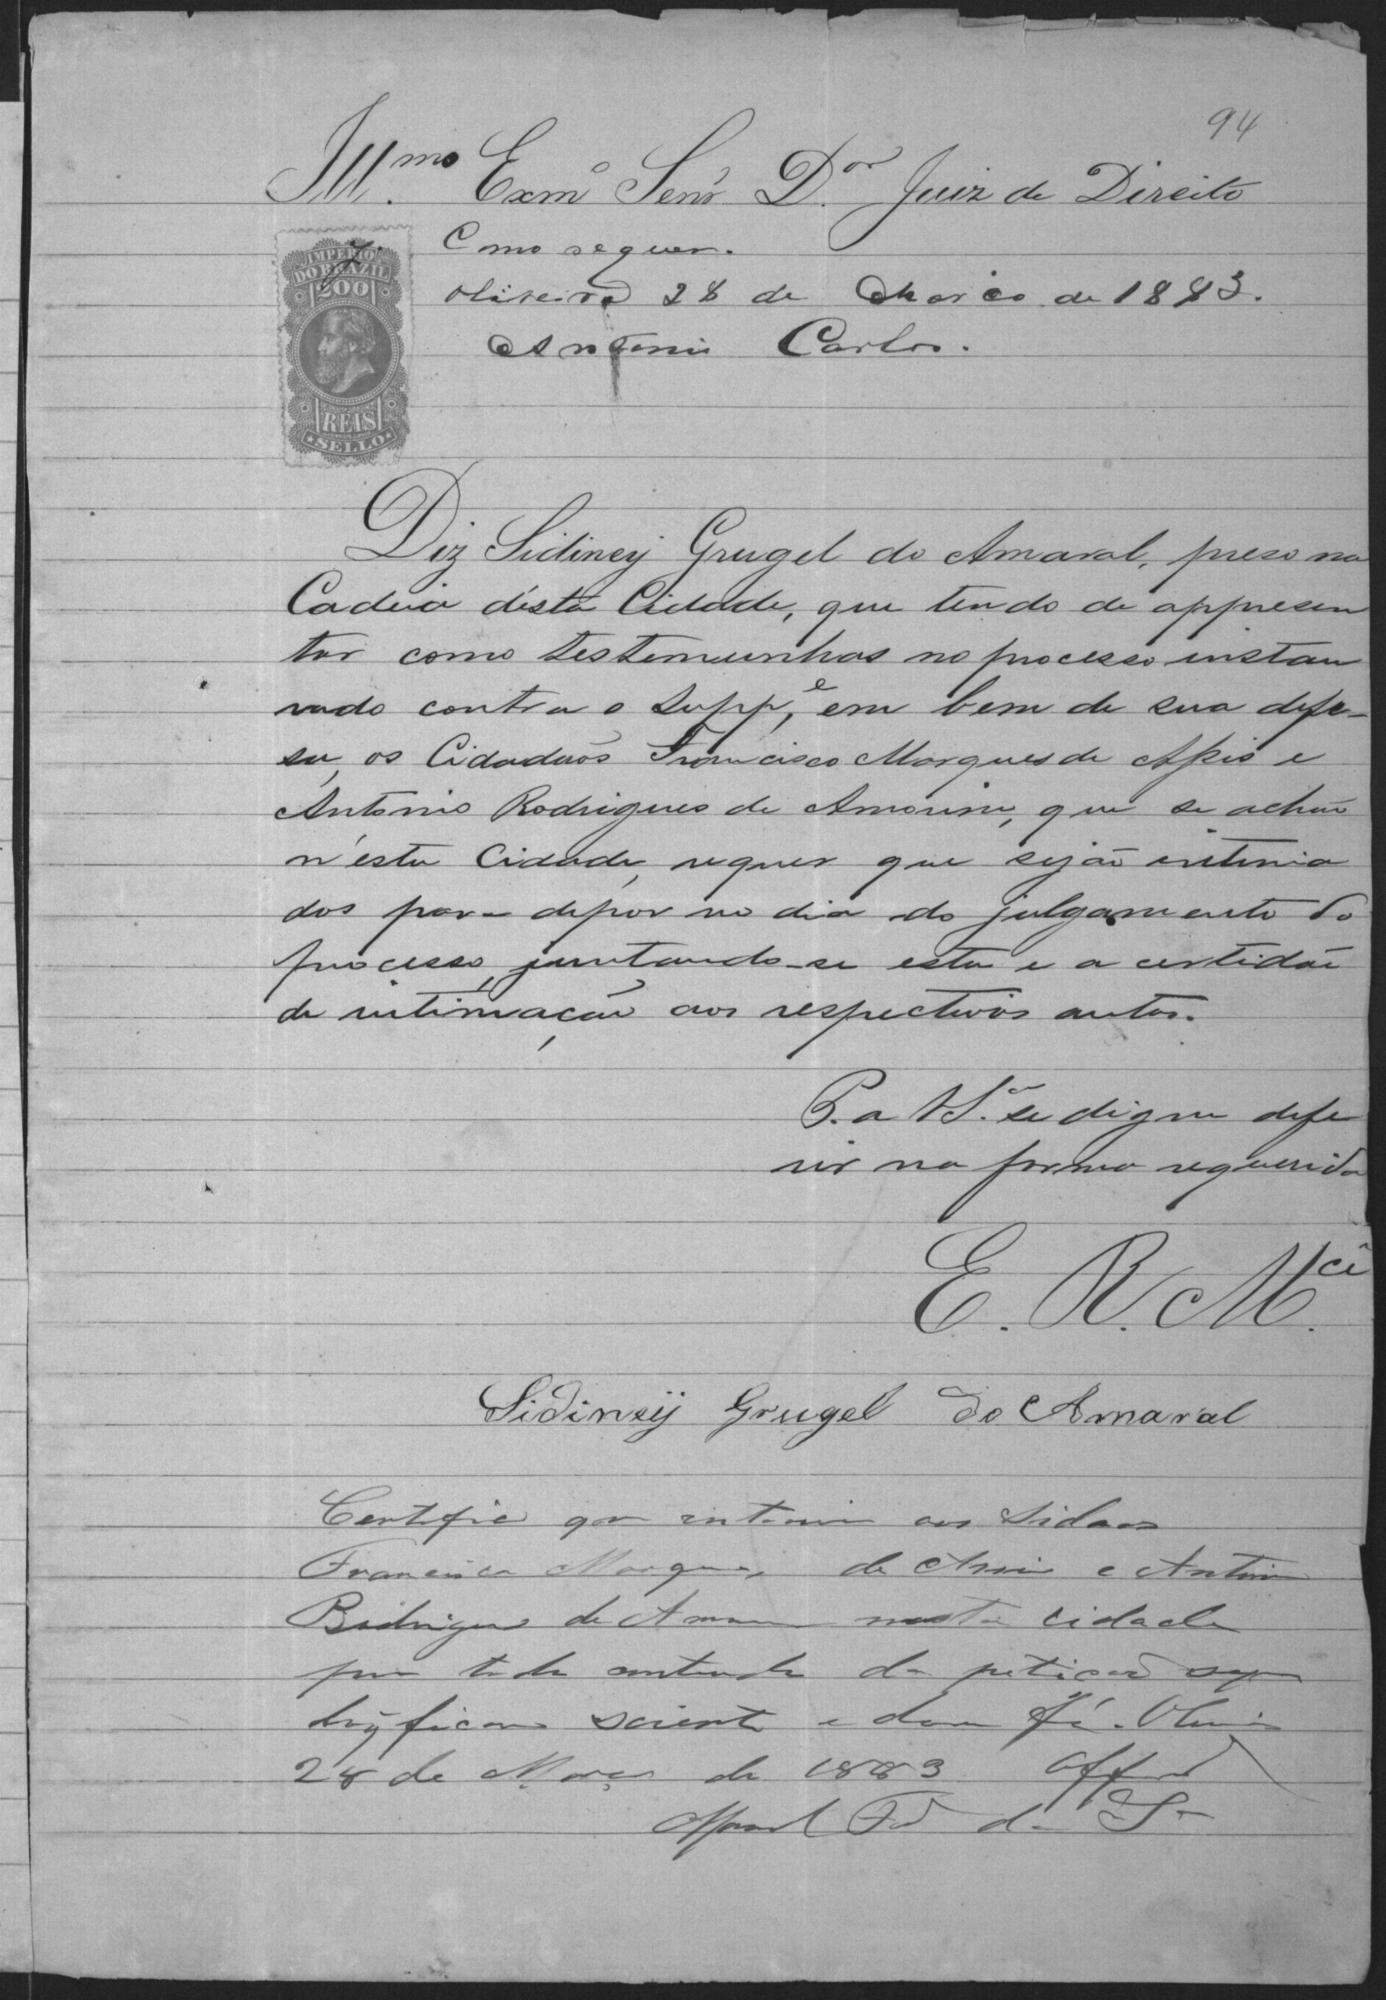 94
Ill.mo Exmº Senr D.or Juiz de Direito
J.
Como requer.
Oliveira 28 de Março de 1883.
Antonio Carlos.
IMPERIO
DO BRAZIL
200
RÉIS
SELLO
Diz Sidiney Grugel do Amaral, preso na
Cadeia désta Cidade, que tendo de appresen
tar como testemunhas no processo instau
rado contra o Supp,e em bem de sua defe-
sa, os Cidadãos Francisco Marques de Assis e
Antonio Rodrigues de Amorim, que se achão
n'ésta Cidade, requer que sejão intima
dos para depor no dia do julgamento do
processo, juntando-se esta e a certidão
de intimação aos respectivos autos.
P. a V. S.ª se digne defe
rir na forma requerida
E. R. M.cê
Sidiney Grugel do Amaral
Certifico que intimei aos Sidaos
Francisco Marques de Assis e Antonio
Rodrigues de Amorim nesta cidade
por todo contiudo da petição
ficarão sciente e dou fé. Oliveira
28 de Março de 1883
da Sa